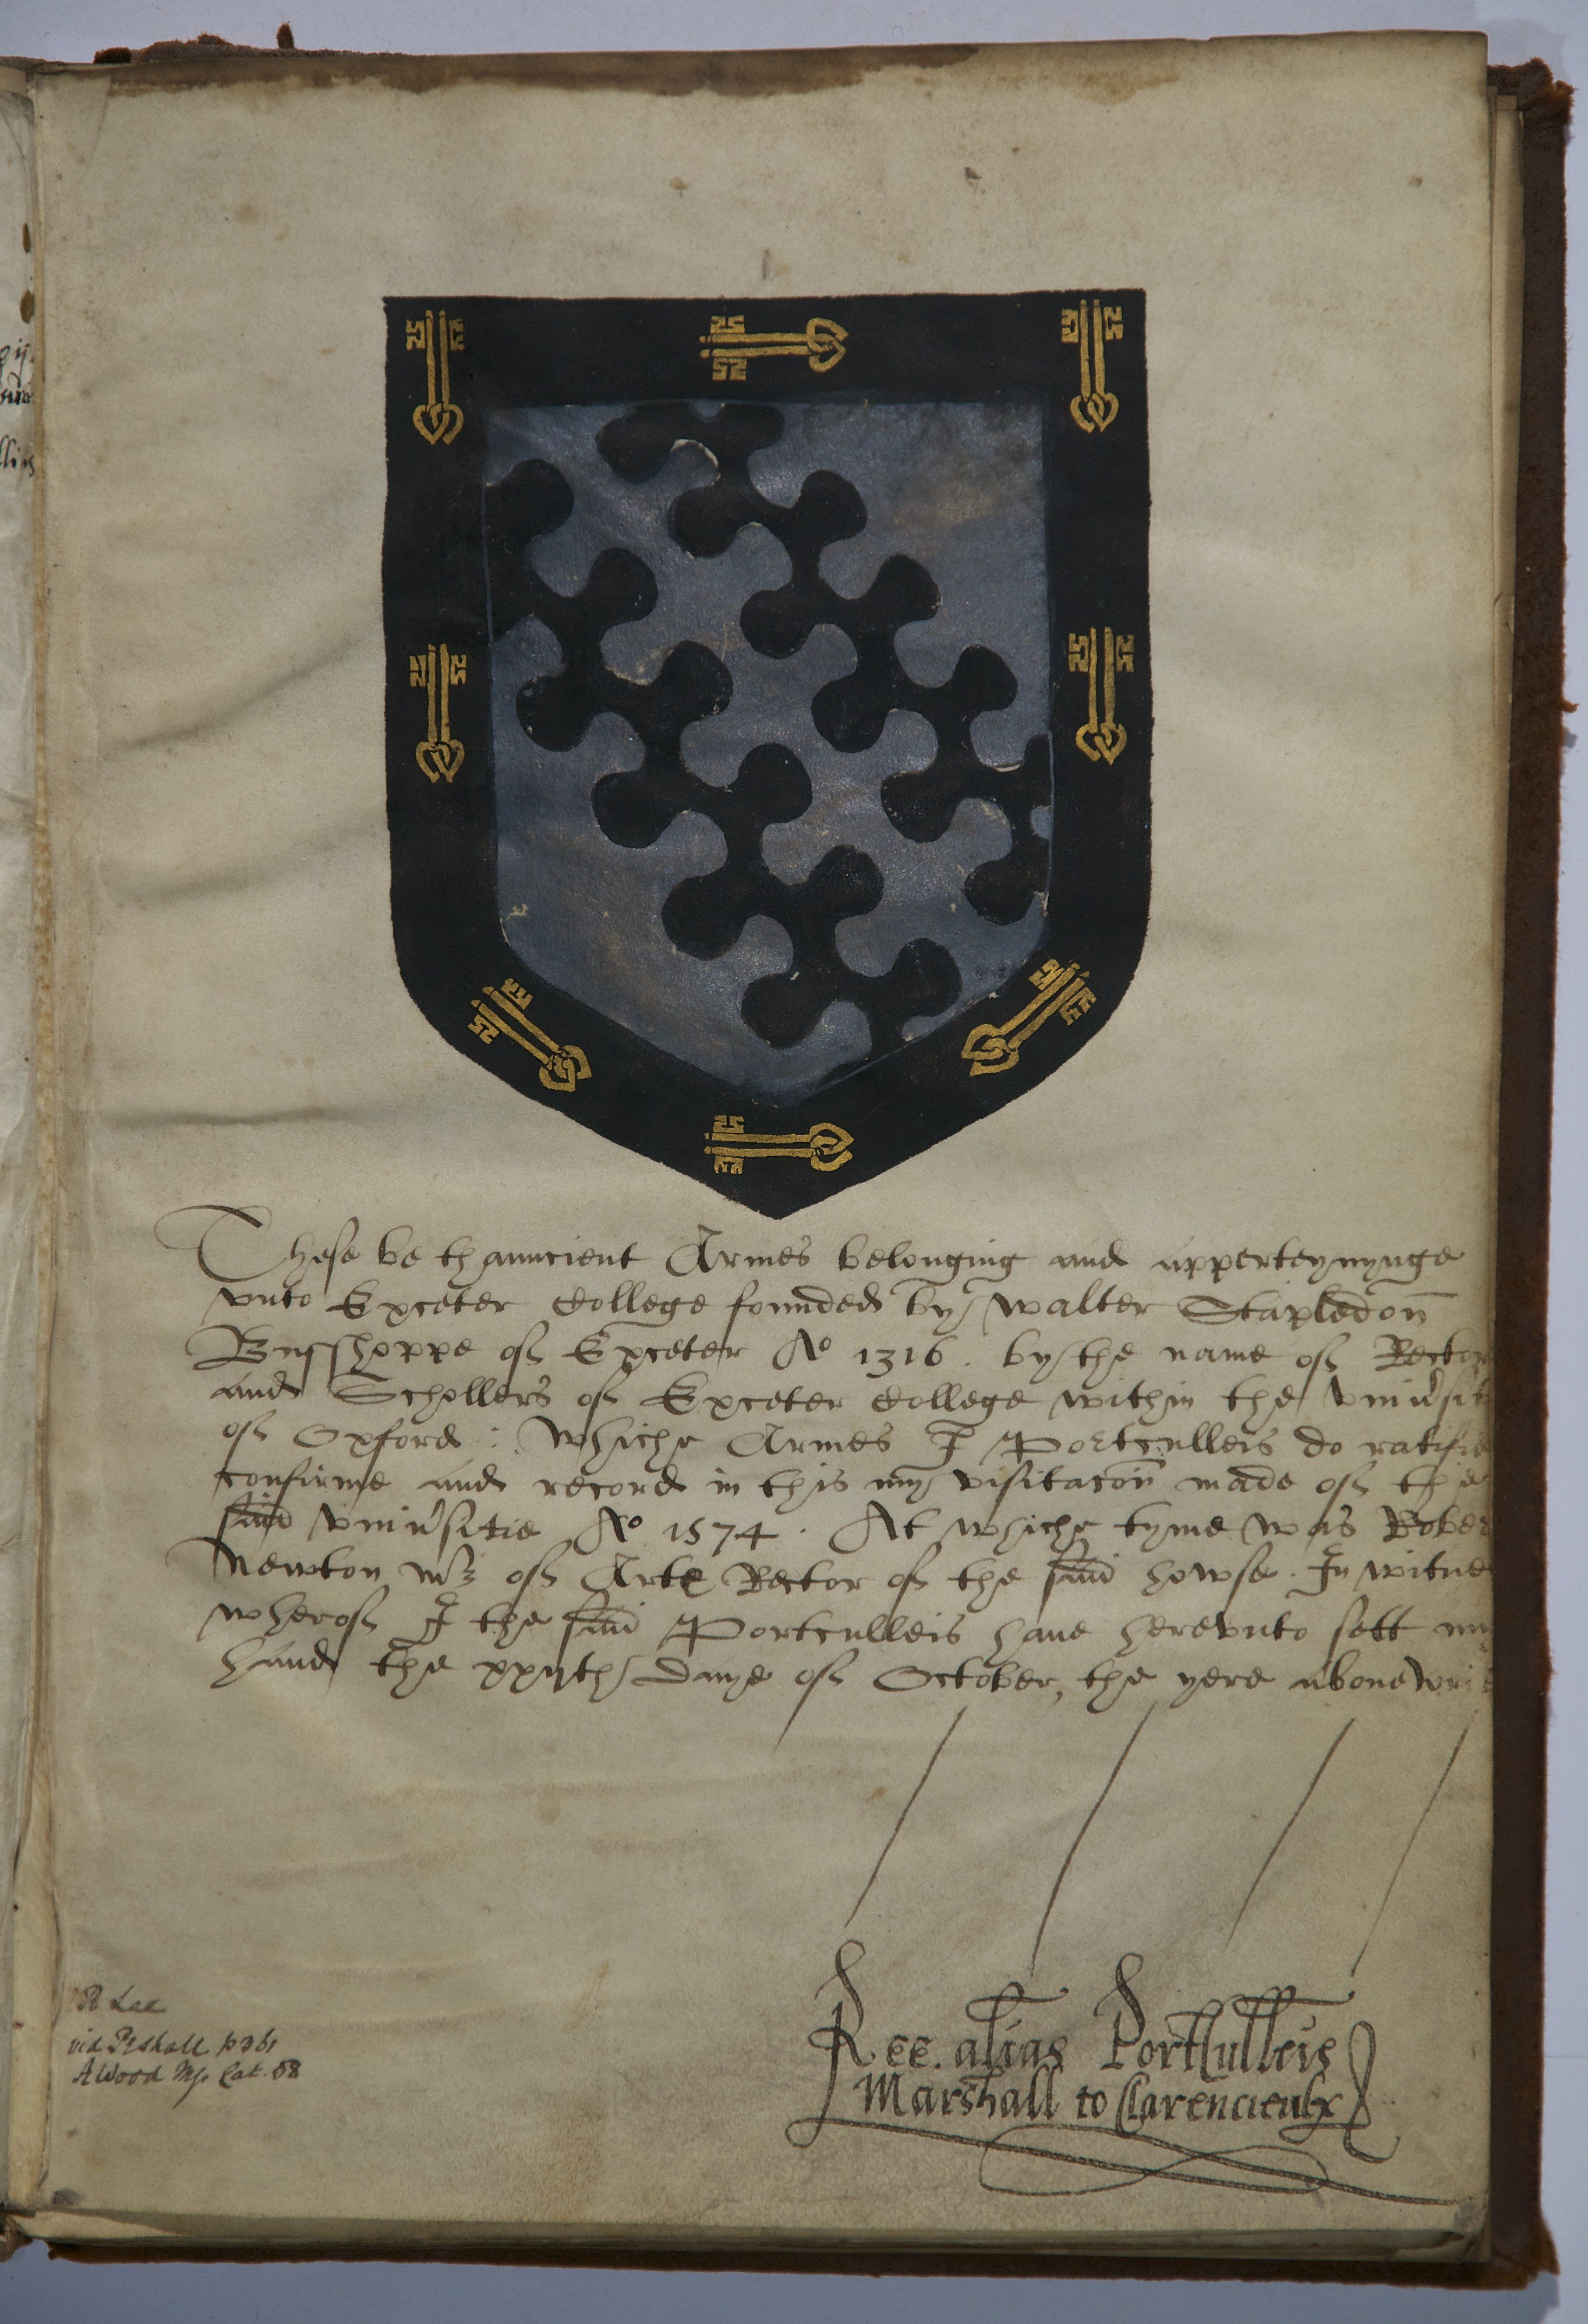 These be thauncient Armes belonging and apperteynynge
vnto Exceter College founded by Walter Stapledon
Busshoppe of Exceter Ao 1316. by the name of Rector
and Schollers of Exceter College within the vniu'sit
of Oxford: Whiche Armes I Portculleis do ratifie
confirme and record in this my visitacon made of the
said vniu'sitie Ao 1574. At whiche tyme was Rober
Newton mr of Arte Rector of the said howse. In witnes
wherof I the said Portculleis haue herevnto sett my
hand the daye of October, the yere aboue
Ree. alias Portcullers
Marshall to Clarencieulx
R Lee
vid Peshall p361
AWood Ms. Cat. 58